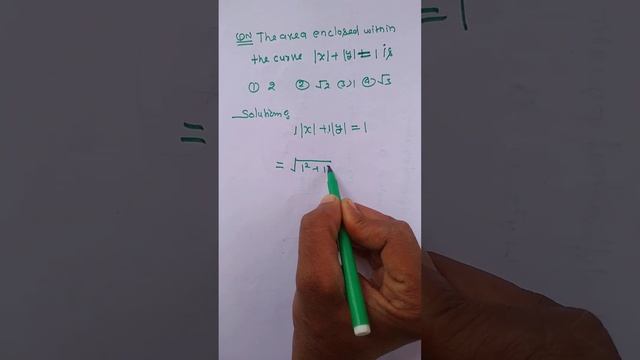 QN The area enclosed within
the curve |x| + |y| = 1 is
① 2 ② √2 ③ 1 ④ √3
Solution:
1|x| + 1|y| = 1
= √1² + 1